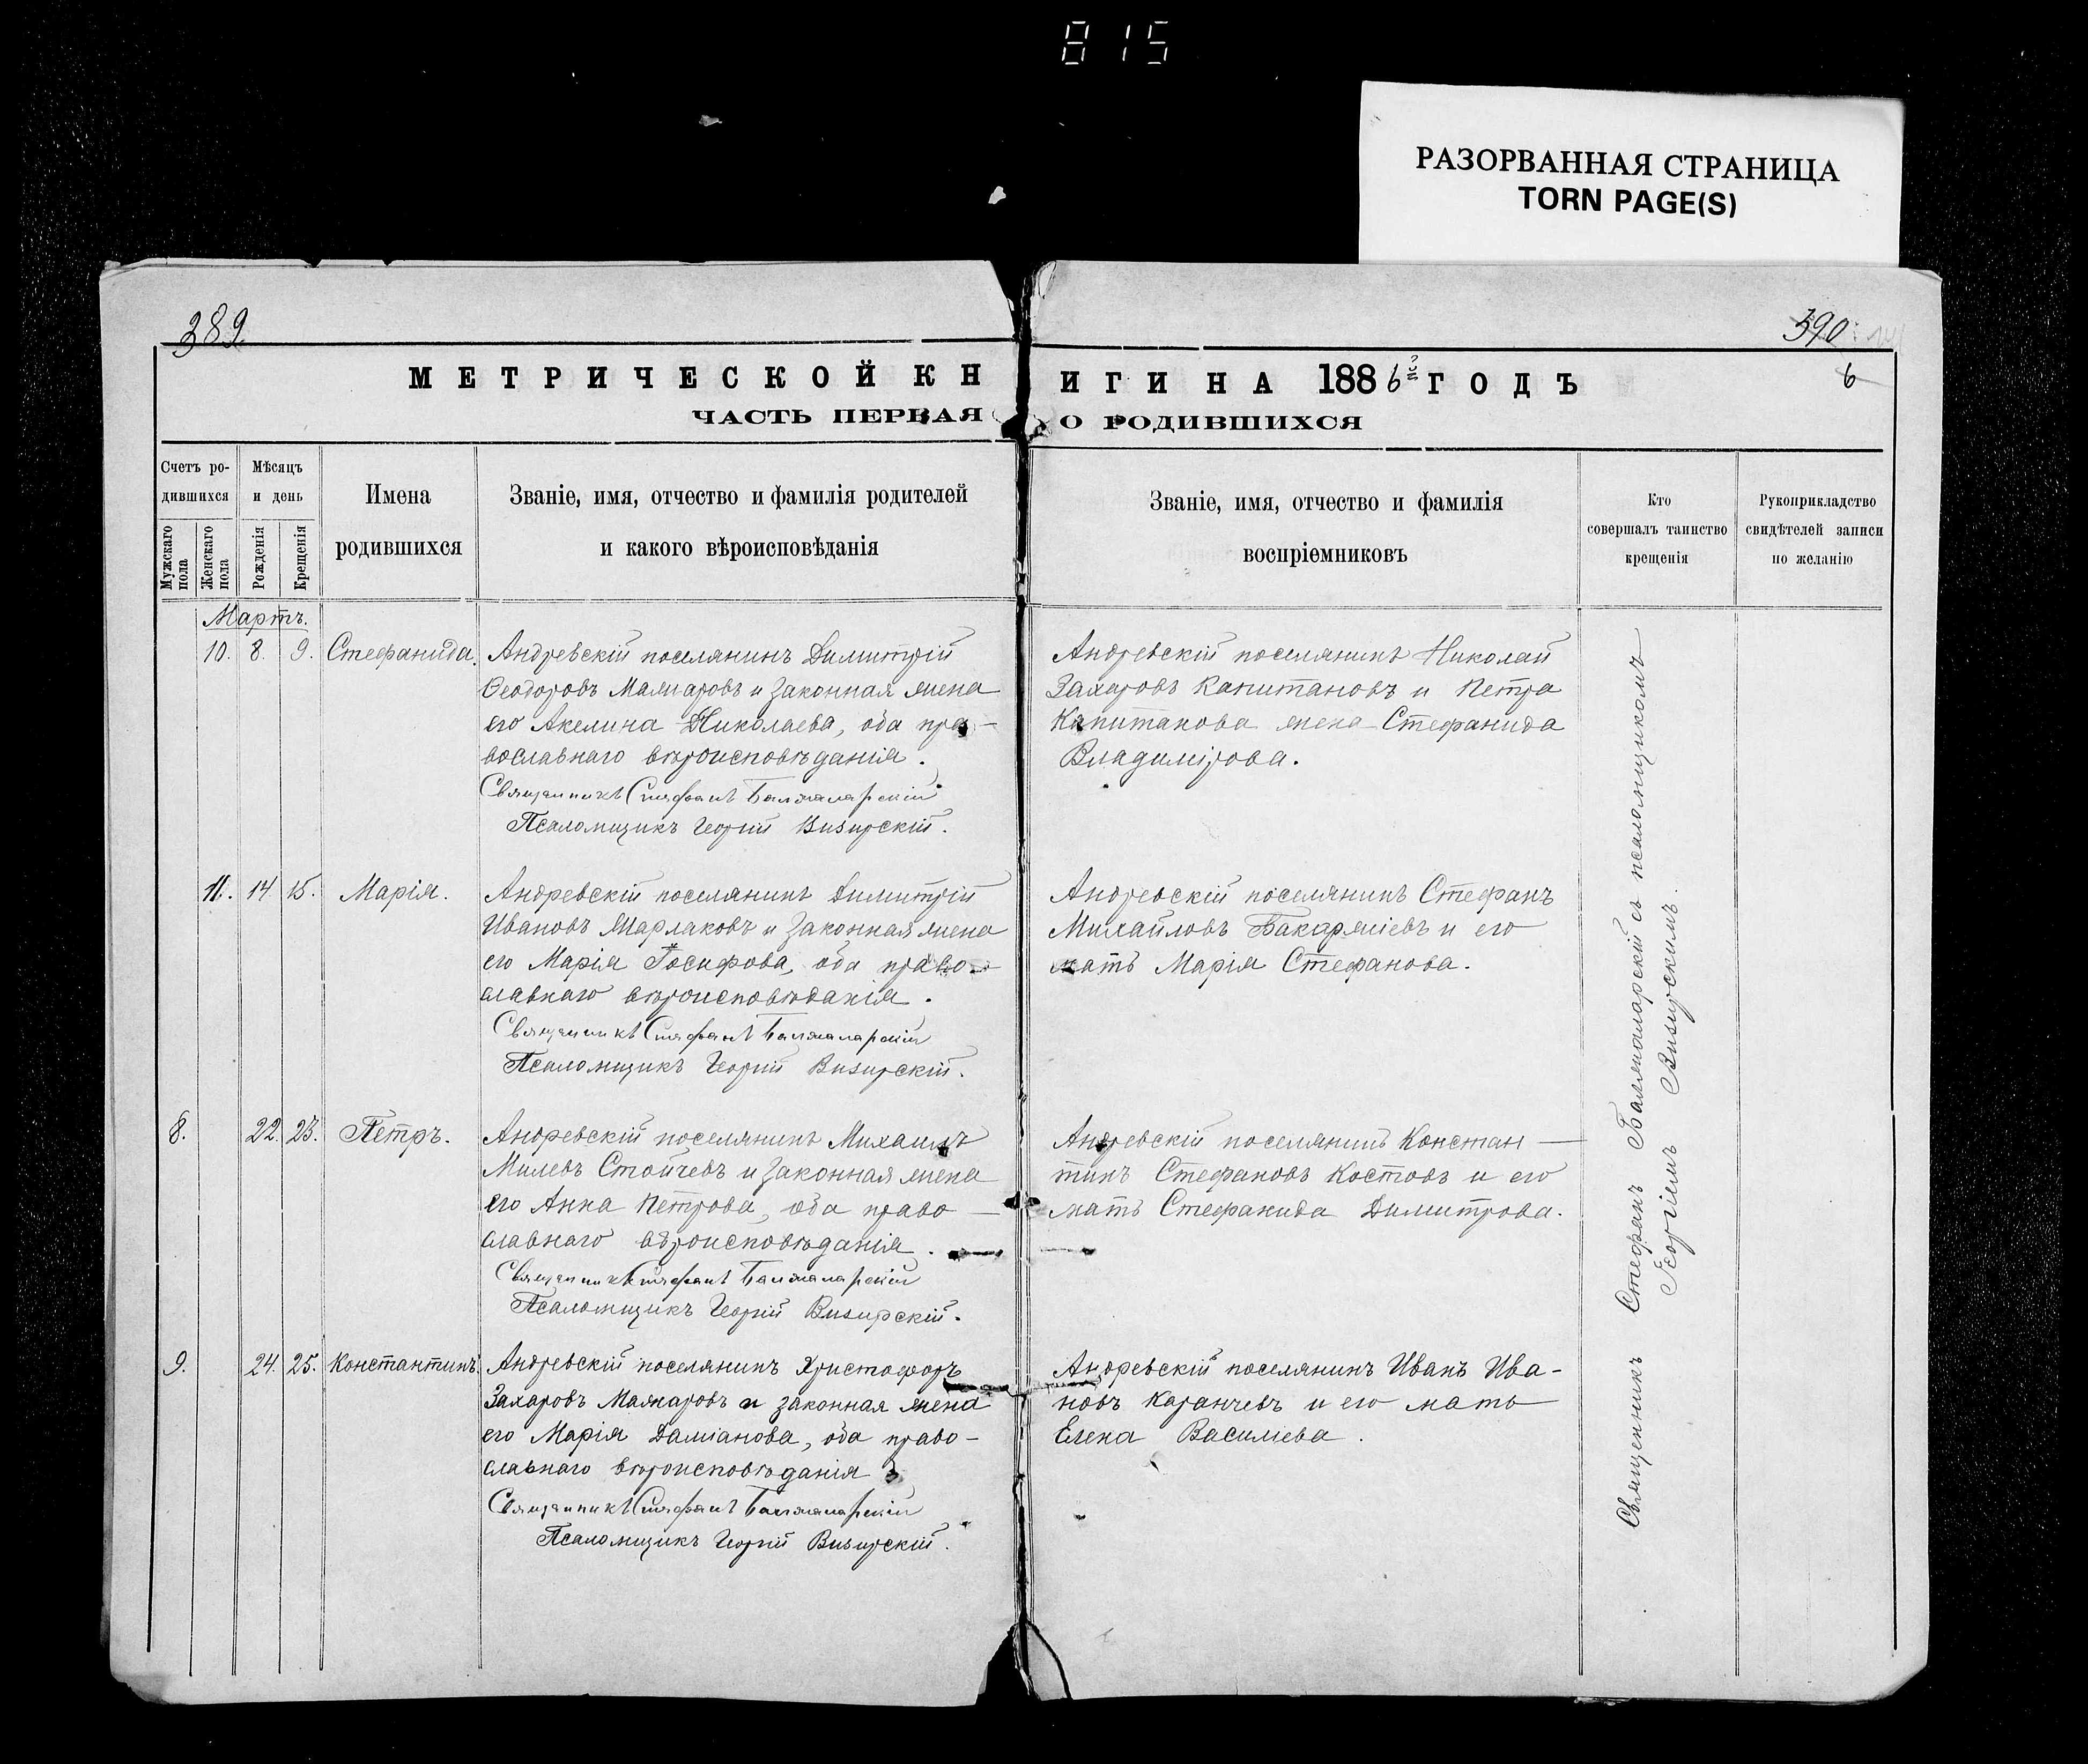 815
РАЗОРВАННАЯ СТРАНИЦА
TORN PAGE(S)
389.
390
6
МЕТРИЧЕСКОЙ КНИГИ НА 1886й ГОДЪ
ЧАСТЬ ПЕРВАЯ О РОДИВШИХСЯ
Счетъ родившихся
Мужскаго пола
Женскаго пола
Мѣсяцъ и день
Рожденія
Крещенія
Имена
родившихся
Званіе, имя, отчество и фамилія родителей
и какого вѣроисповѣданія
Званіе, имя, отчество и фамилія
воспріемниковъ
Кто
совершалъ таинство
крещенія
Рукоприкладство
свидѣтелей записи
по желанію
Мартъ.
10. 8. 9. Стефанида.
Андревскій поселянинъ Димитрій
Ѳеодоровъ Малжаровъ и законная жена
его Акелина Николаева, оба пра-
вославнаго вѣроисповѣданія.
Священникъ Стефанъ Балжаларскій
Псаломщикъ Георгій Визирскій.
Андревскій поселянинъ Николай
Захаровъ Капитановъ и Петра
Капитанова жена Стефанида
Владимірова.
11. 14. 15. Марія.
Андревскій поселянинъ Димитрій
Ивановъ Марлаковъ и законная жена
его Марія Іосифова, оба право-
славнаго вѣроисповѣданія.
Священникъ Стефанъ Балжаларскій
Псаломщикъ Георгій Визирскій.
Андревскій поселянинъ Стефанъ
Михайловъ Бакаржіевъ и его
мать Марія Стефанова.
8. 22. 23. Петръ.
Андревскій поселянинъ Михаилъ
Милевъ Стойчевъ и законная жена
его Анна Петрова, оба право-
славнаго вѣроисповѣданія.
Священникъ Стефанъ Балжаларскій
Псаломщикъ Георгій Визирскій.
Андревскій поселянинъ Констан-
тинъ Стефановъ Костовъ и его
мать Стефанида Димитрова.
9. 24. 25. Константинъ.
Андревскій поселянинъ Христофоръ
Захаровъ Малжаровъ и законная жена
его Марія Даміанова, оба право-
славнаго вѣроисповѣданія
Священникъ Стефанъ Балжаларскій
Псаломщикъ Георгій Визирскій.
Андревскій поселянинъ Иванъ Ива-
новъ Каранчевъ и его мать
Елена Василіева.
Священникъ Стефанъ Балжаларскій съ псаломщикомъ
Георгіемъ Визирскимъ.